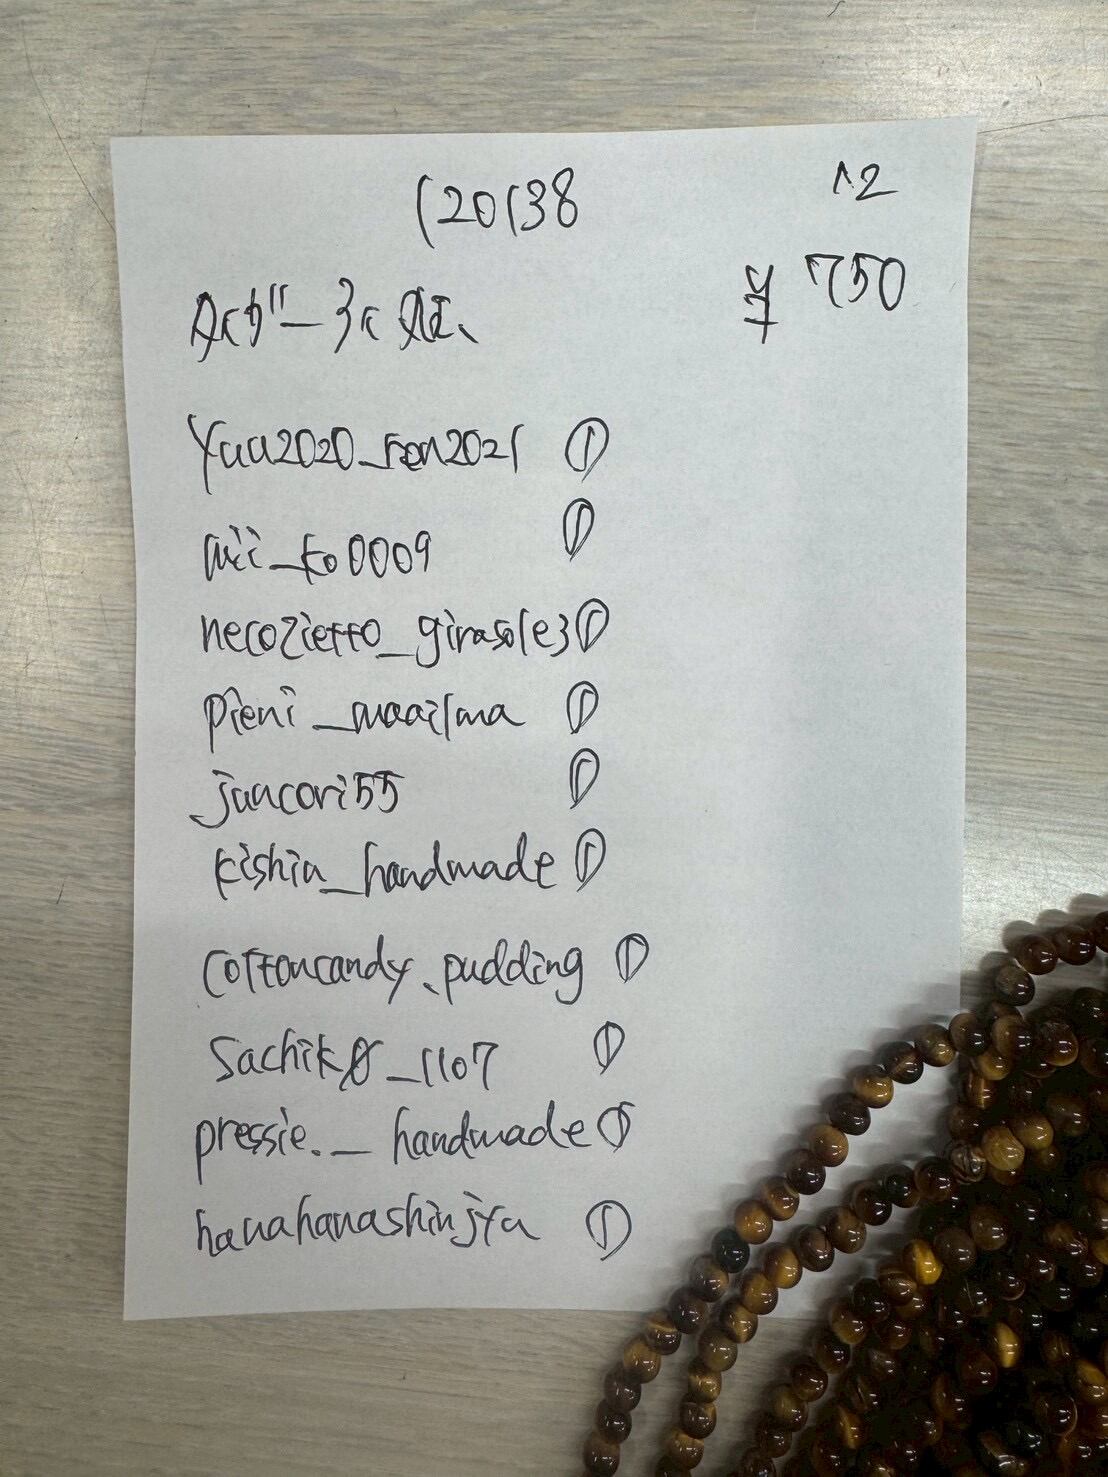 120138 12
¥ 750
yuu2020_ren2021 ①
mii_ko0009 ①
necozietto_girasole3 ①
pieni_maailma ①
juncori55 ①
kishin_handmade ①
cottoncandy.pudding ①
sachik8_1107 ①
pressie._handmade ①
hanahanashinjyu ①